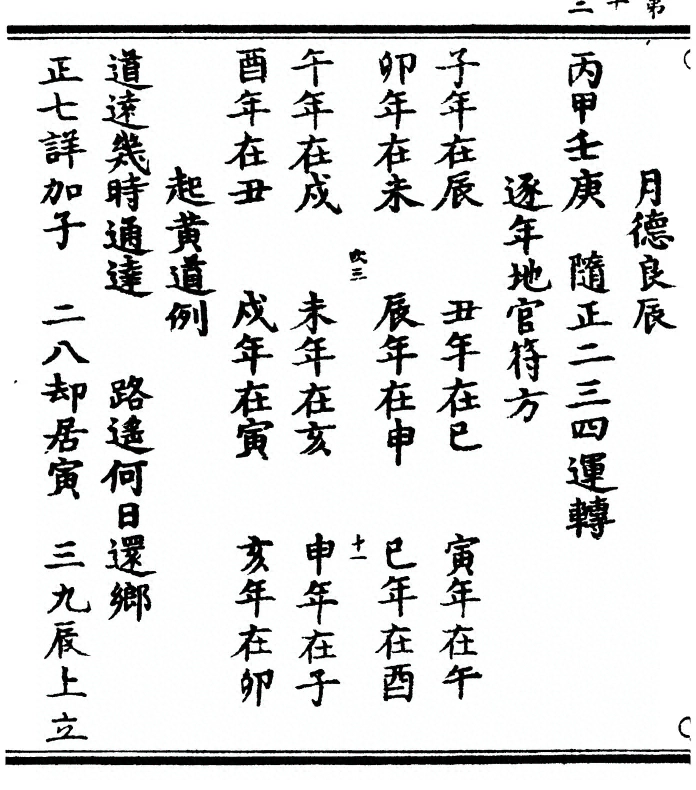 第十二
月德良辰
丙甲壬庚　隨正二三四運轉
逐年地官符方
子年在辰　丑年在巳　寅年在午
卯年在未　辰年在申　巳年在酉
吹三　十一
午年在戍　未年在亥　申年在子
酉年在丑　戍年在寅　亥年在卯
起黃道例
道遠幾時通達　路遙何日還鄉
正七詳加子　二八却居寅　三九辰上立